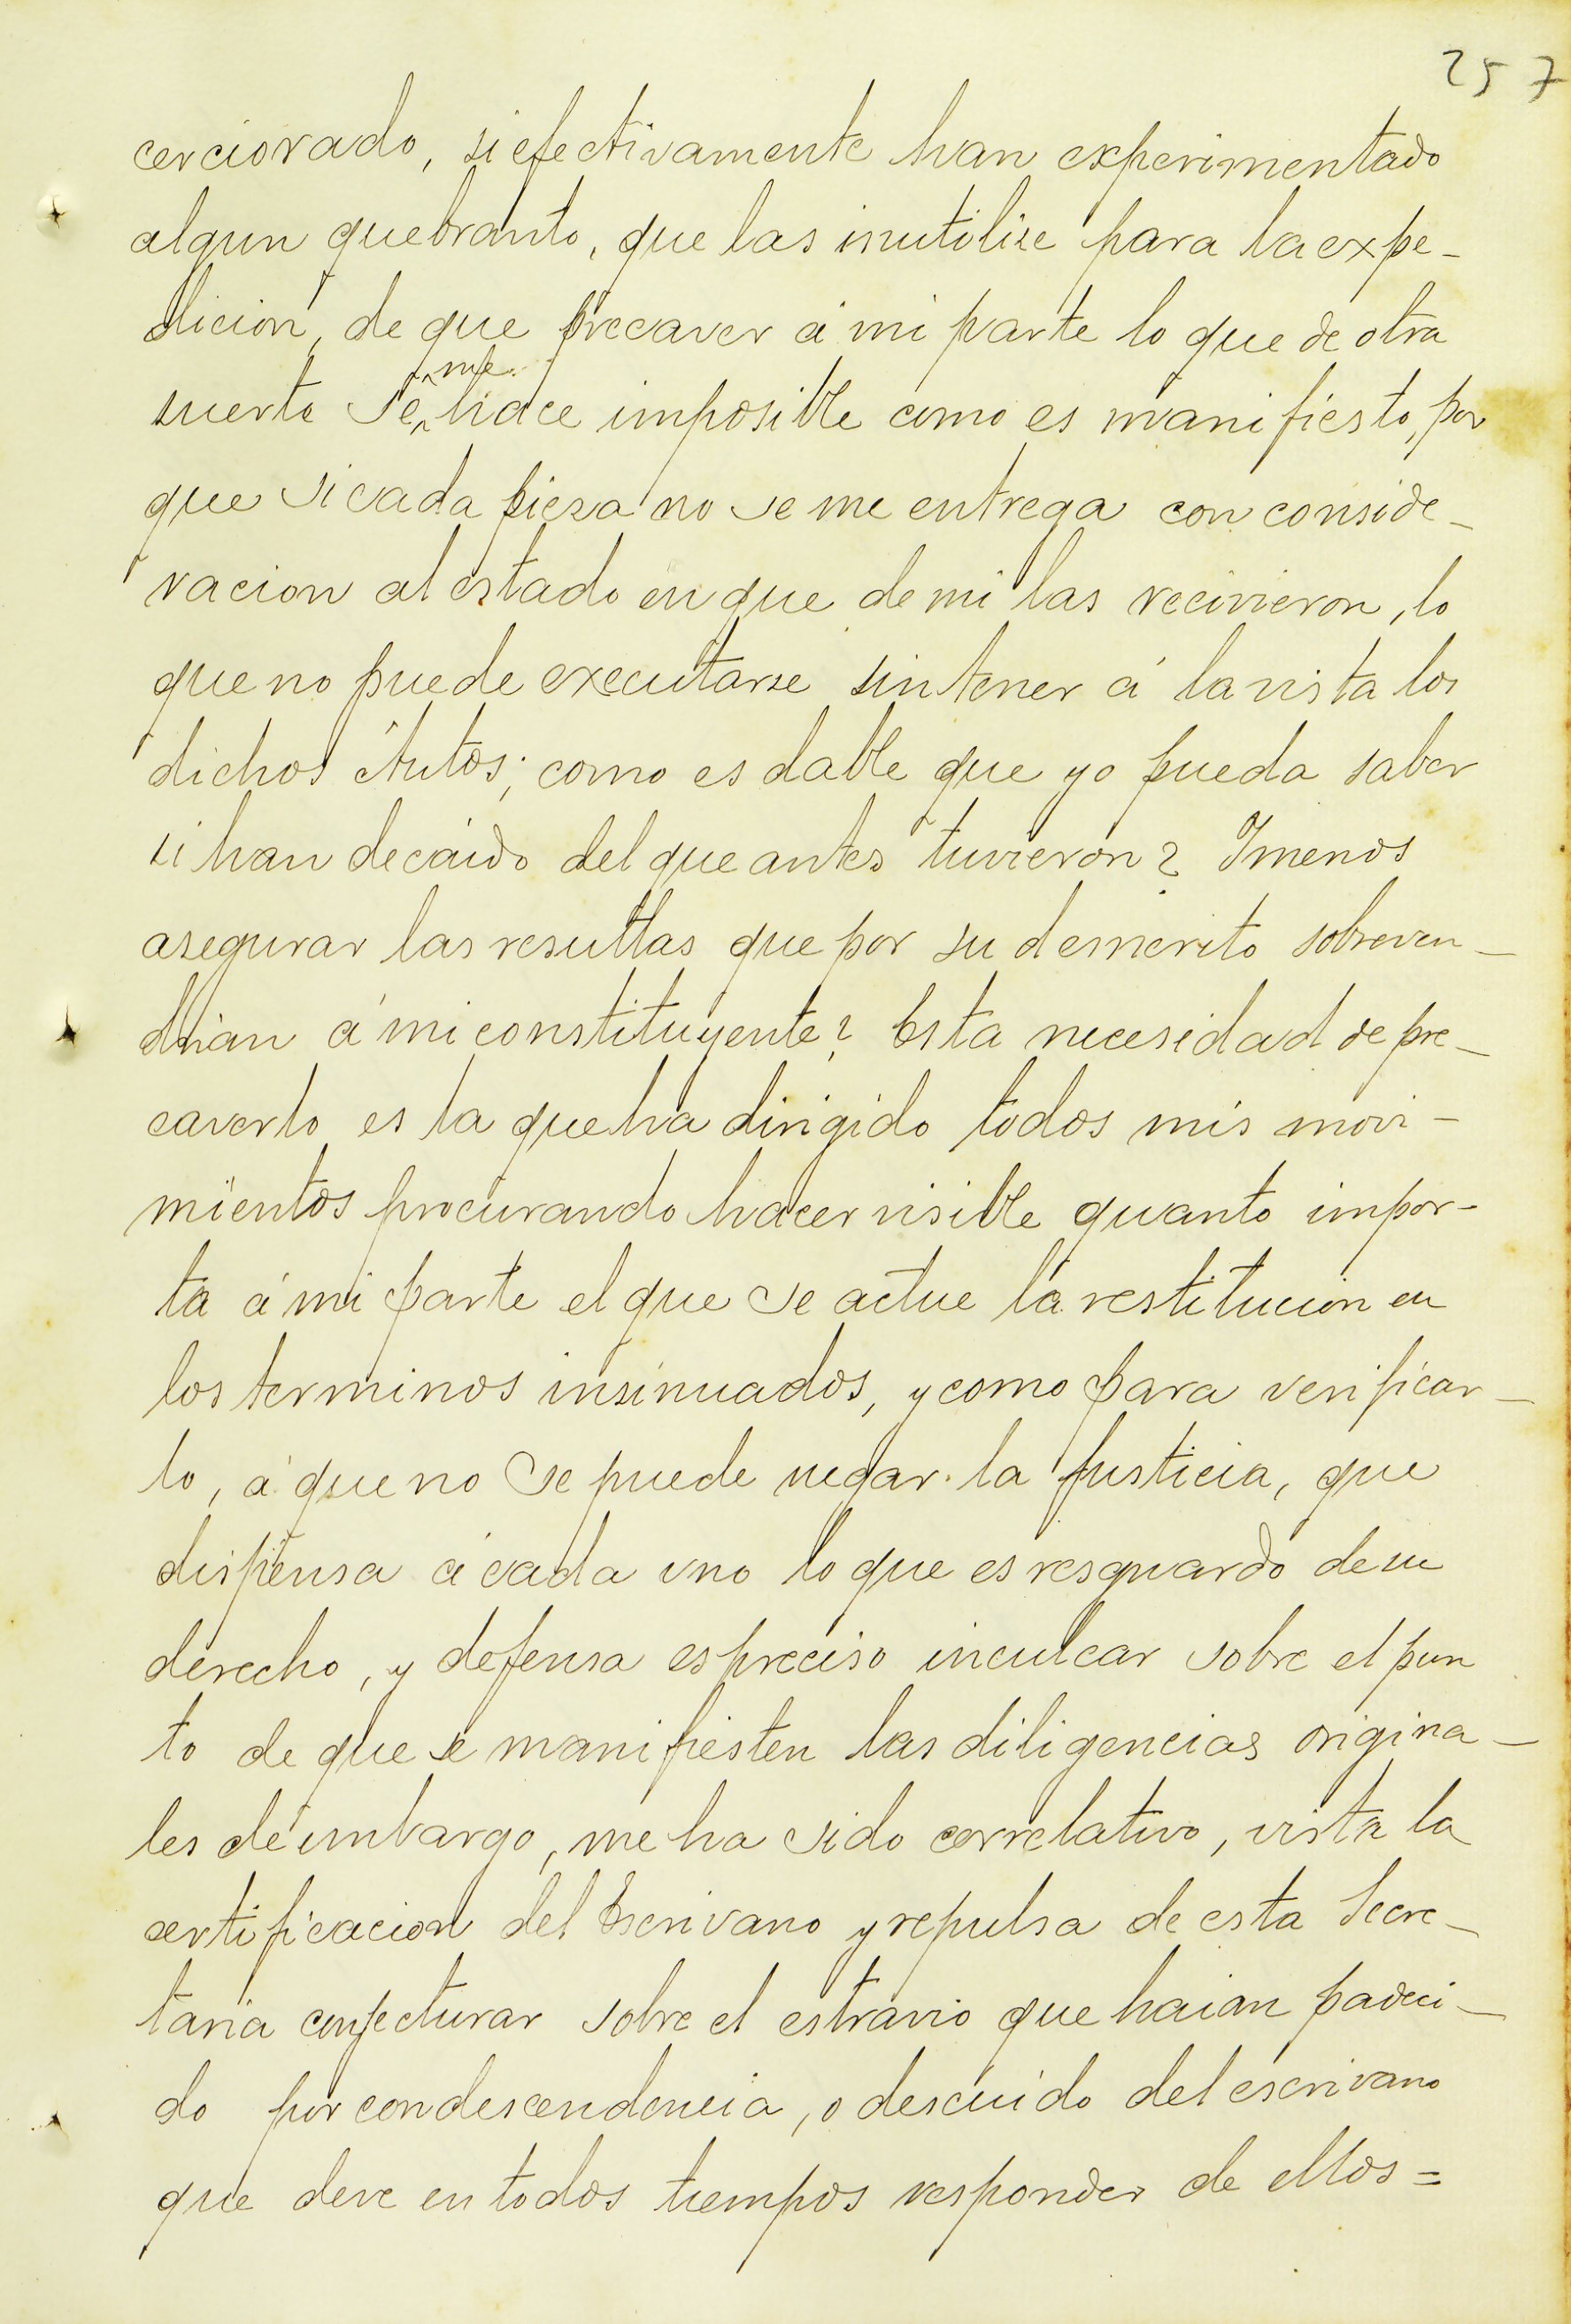 257
cerciorado, si efectivamente han experimentado
algun quebranto, que las inutilise para la expe-
dicion, de que precaver á mi parte lo que de otra
suerte se me hace imposible como es manifiesto, por
que si cada pieza no se me entrega con conside-
racion al estado en que de mi las recivieron, lo
que no puede executarse sin tener á la vista los
dichos Autos; como es dable que yo pueda saber
si han decaido del que antes tuvieron? Y menos
asegurar las resultas que por su demerito sobreven-
drian á mi constituyente? Esta necesidad de pre-
caverlo es la que ha dirigido todos mis movi-
mientos procurando hacer visible quanto impor-
ta á mi parte el que se actue la restitucion en
los terminos insinuados, y como para verificar-
lo, á que no se puede negar la Justicia, que
dispensa á cada uno lo que es resguardo de su
derecho, y defensa es preciso inculcar sobre el pun
to de que se manifiesten las diligencias origina-
les de embargo, me ha sido correlativo, vista la
certificacion del Escrivano y repulsa de esta Secre-
taria conjecturar sobre el estravio que haian padeci-
do por condescendencia, o descuido del escrivano
que deve en todos tiempos responder de ellos=